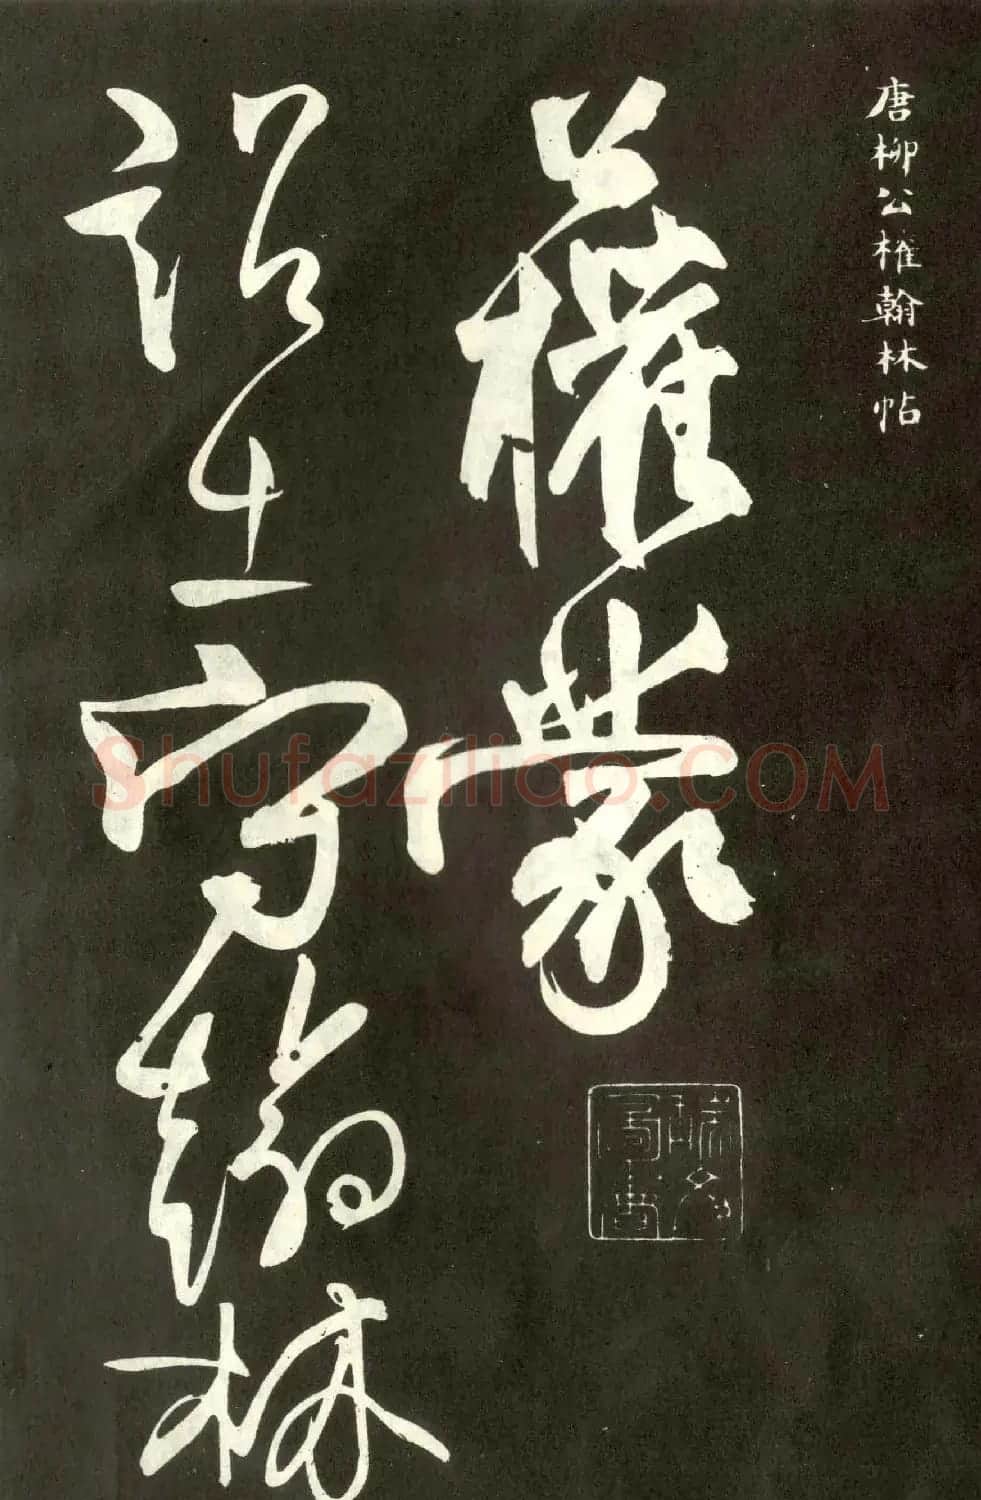 唐柳公權翰林帖
公權蒙
詔出守翰林
Shufaziliao.COM